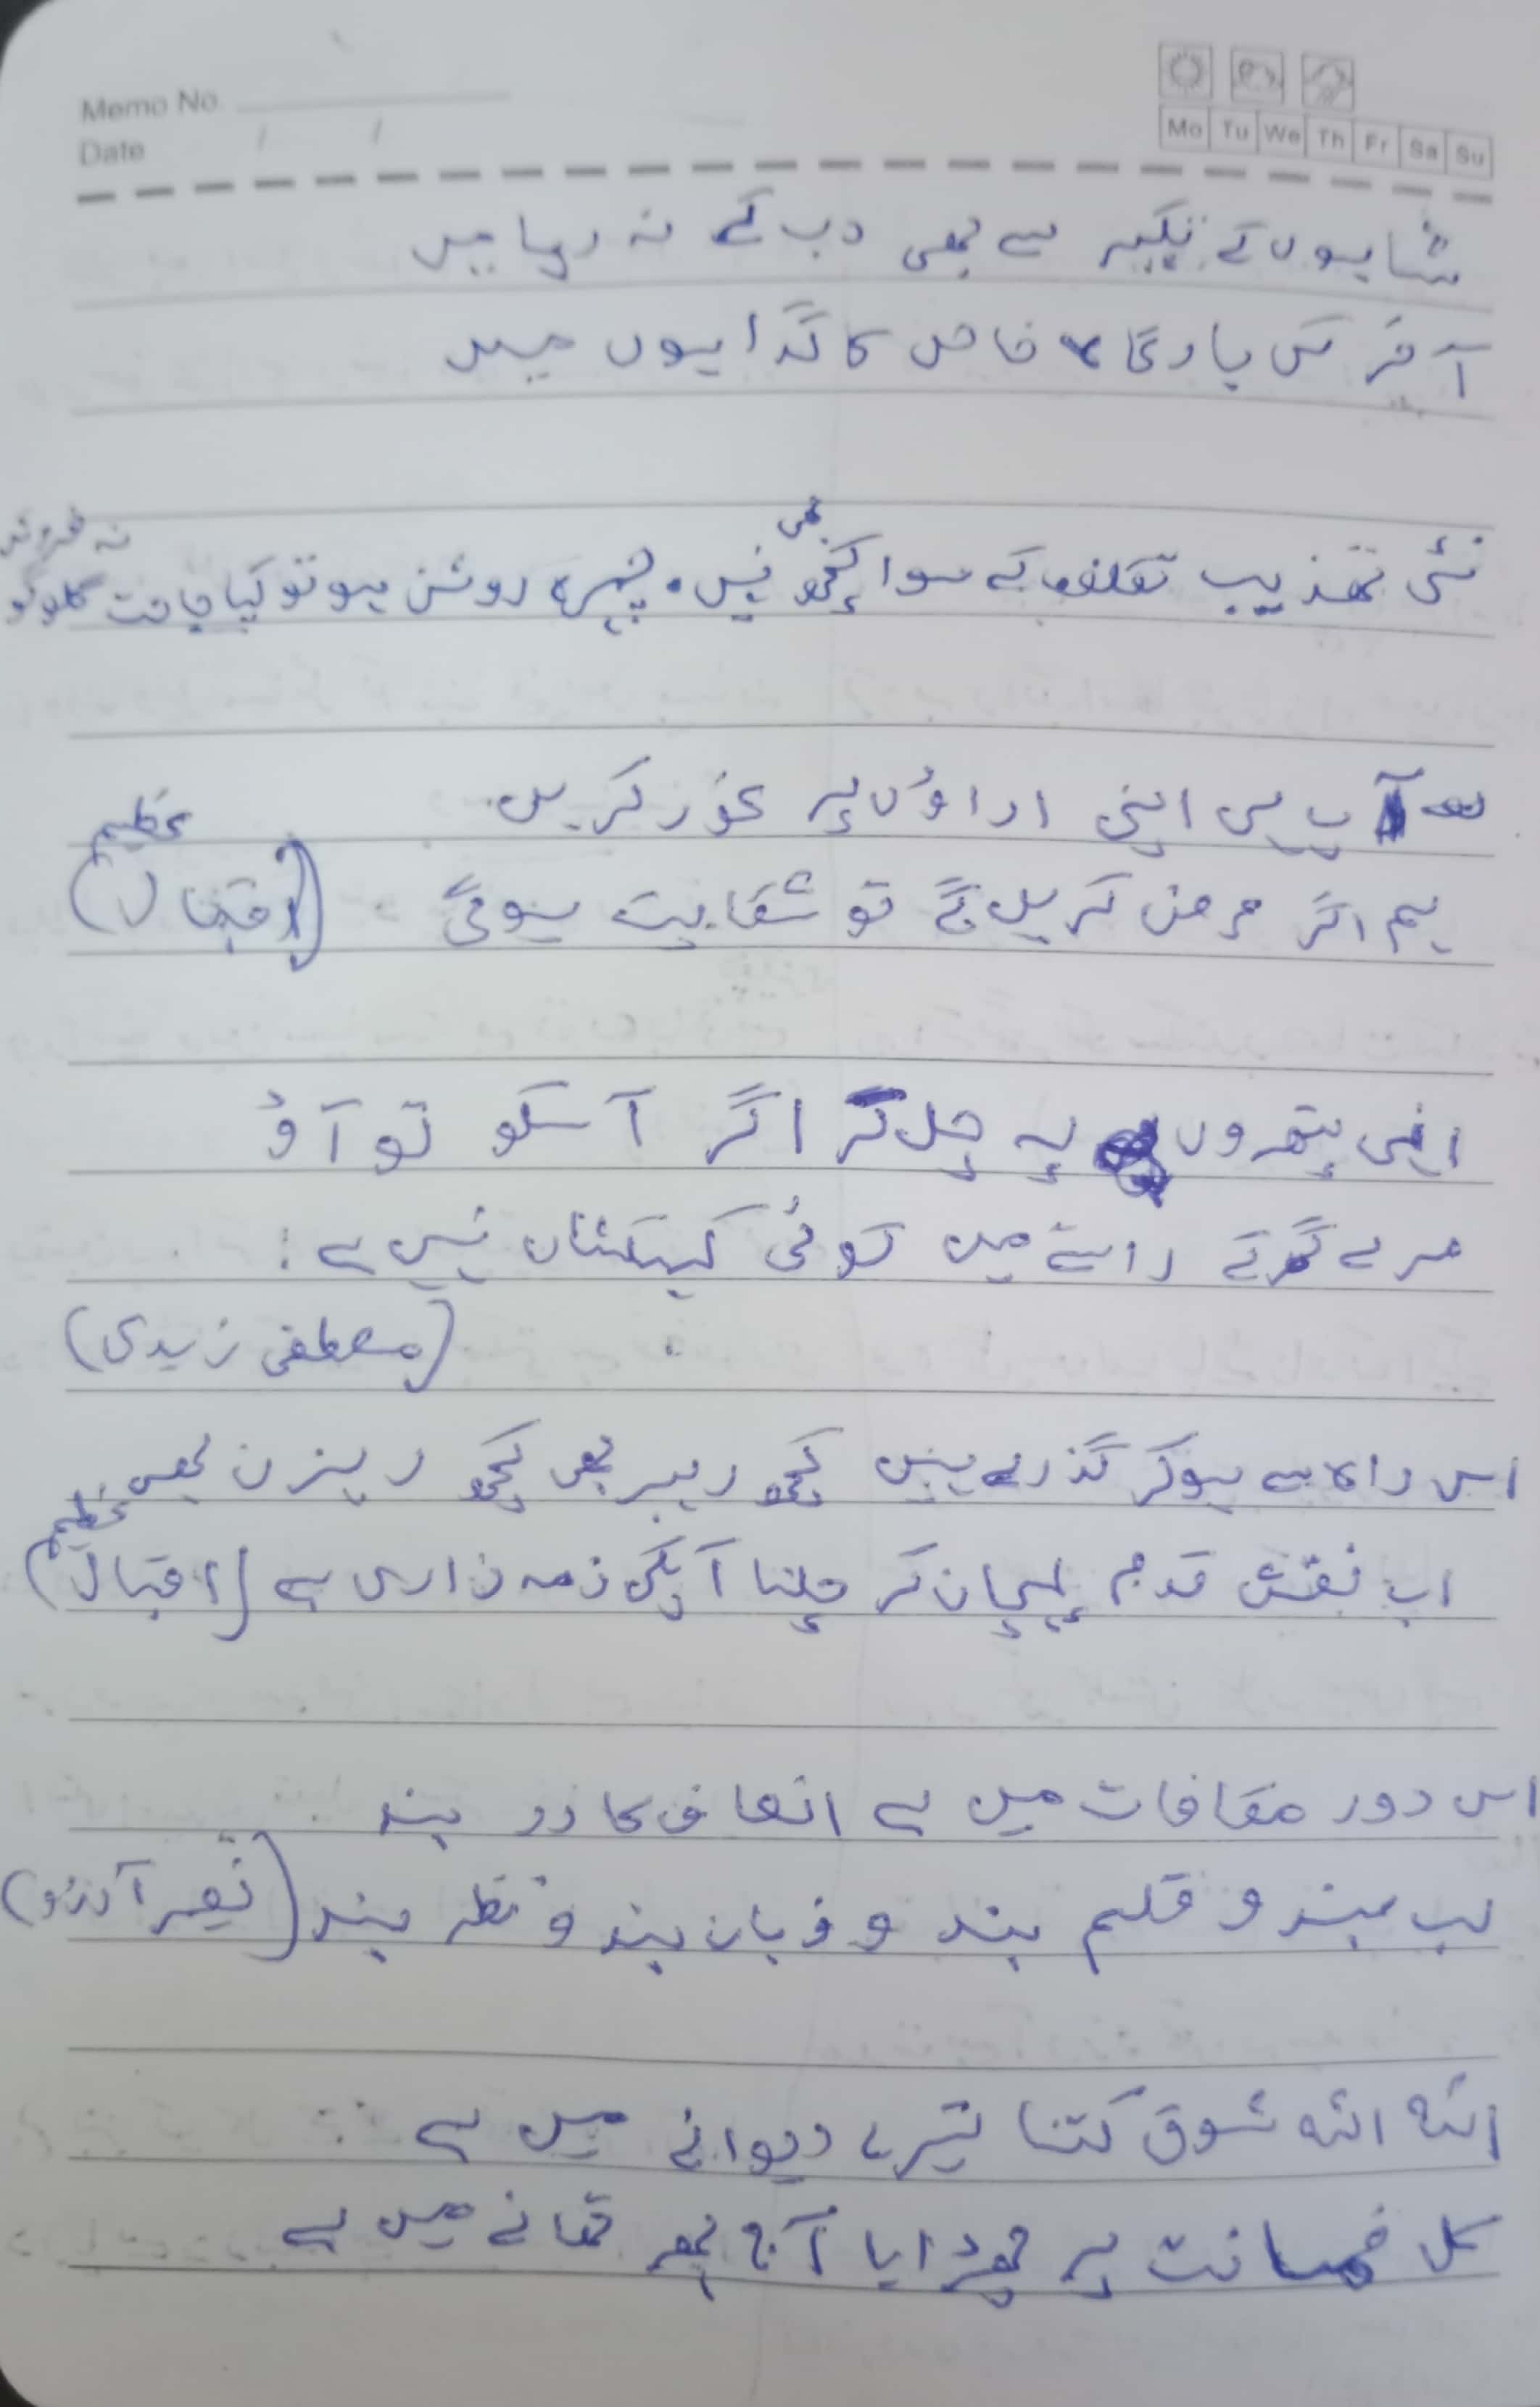 Memo No
Date / /
Mo Tu We Th Fr Sa Su
شاہوں کے تکبر سے بھی دب کے نہ رہا میں
آخر کس بارگاہ خاص کا گدا ہوں میں
نئی تہذیب تکلف کے سوا کچھ بھی نہیں۔ چہرہ روشن ہو تو کیا حاجت گلگونہ فروش
آپ ہی اپنی اداؤں پہ غور کریں
ہم اگر عرض کریں گے تو شکایت ہوگی (اقبال عظیم)
انہی پتھروں پہ چل کر اگر آسکو تو آؤ
مرے گھر کے راستے میں کوئی کہکشاں نہیں ہے
(مصطفی زیدی)
اس راہ سے ہوکر گذرے ہیں کچھ رہبر بھی کچھ رہزن بھی
اب نقش قدم پہچان کر چلنا آپکی ذمہ داری ہے (اقبال عظیم)
اس دور میں ہے انصاف کا در بند
لب بند و قلم بند و زبان بند و نظر بند (نصیر آرزو)
اللہ اللہ شوق کتنا تیرے دیوانے میں ہے
کل ضمانت پر چھڑایا آج پھر تھانے میں ہے